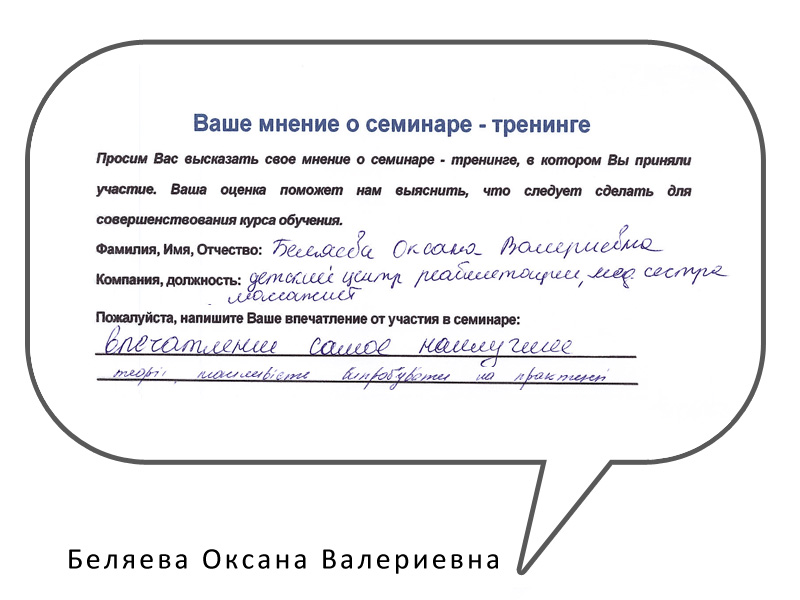 Ваше мнение о семинаре - тренинге
Просим Вас высказать свое мнение о семинаре - тренинге, в котором Вы приняли
участие. Ваша оценка поможет нам выяснить, что следует сделать для
совершенствования курса обучения.
Фамилия, Имя, Отчество: Беляева Оксана Валериевна
Компания, должность: детский центр реабилетации, мед. сестра
массажист
Пожалуйста, напишите Ваше впечатление от участия в семинаре:
впечатление самое наилучшее
теорії, можливість випробувати на практиці
Беляева Оксана Валериевна